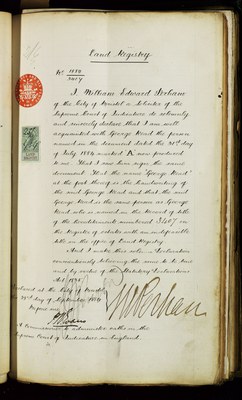 Land Registry
No 1884
I, William Edward
of the City of Bristol a Solicitor of the
Supreme Court of Judicature do solemnly
and sincerely declare that I am well
acquainted with George Hood the person
named in the document dated the day
of July 1884 marked A now produced
to me. That I saw him sign the same
document. That the name "George Hood"
at the foot thereof is the handwriting of
the said George Hood and that the said
George Hood is the same person as George
Hood who is named in the Record of title
of the hereditaments numbered on
the Register of estates with an indefeasible
title in the office of Land Registry.
And I make this solemn Declaration
conscientiously believing the same to be true
and by virtue of the Statutory Declarations
Act 1835
Declared at the City of Bristol
day of September 1884
Before me
A Commissioner to administer oaths in the
Supreme Court of Judicature in England